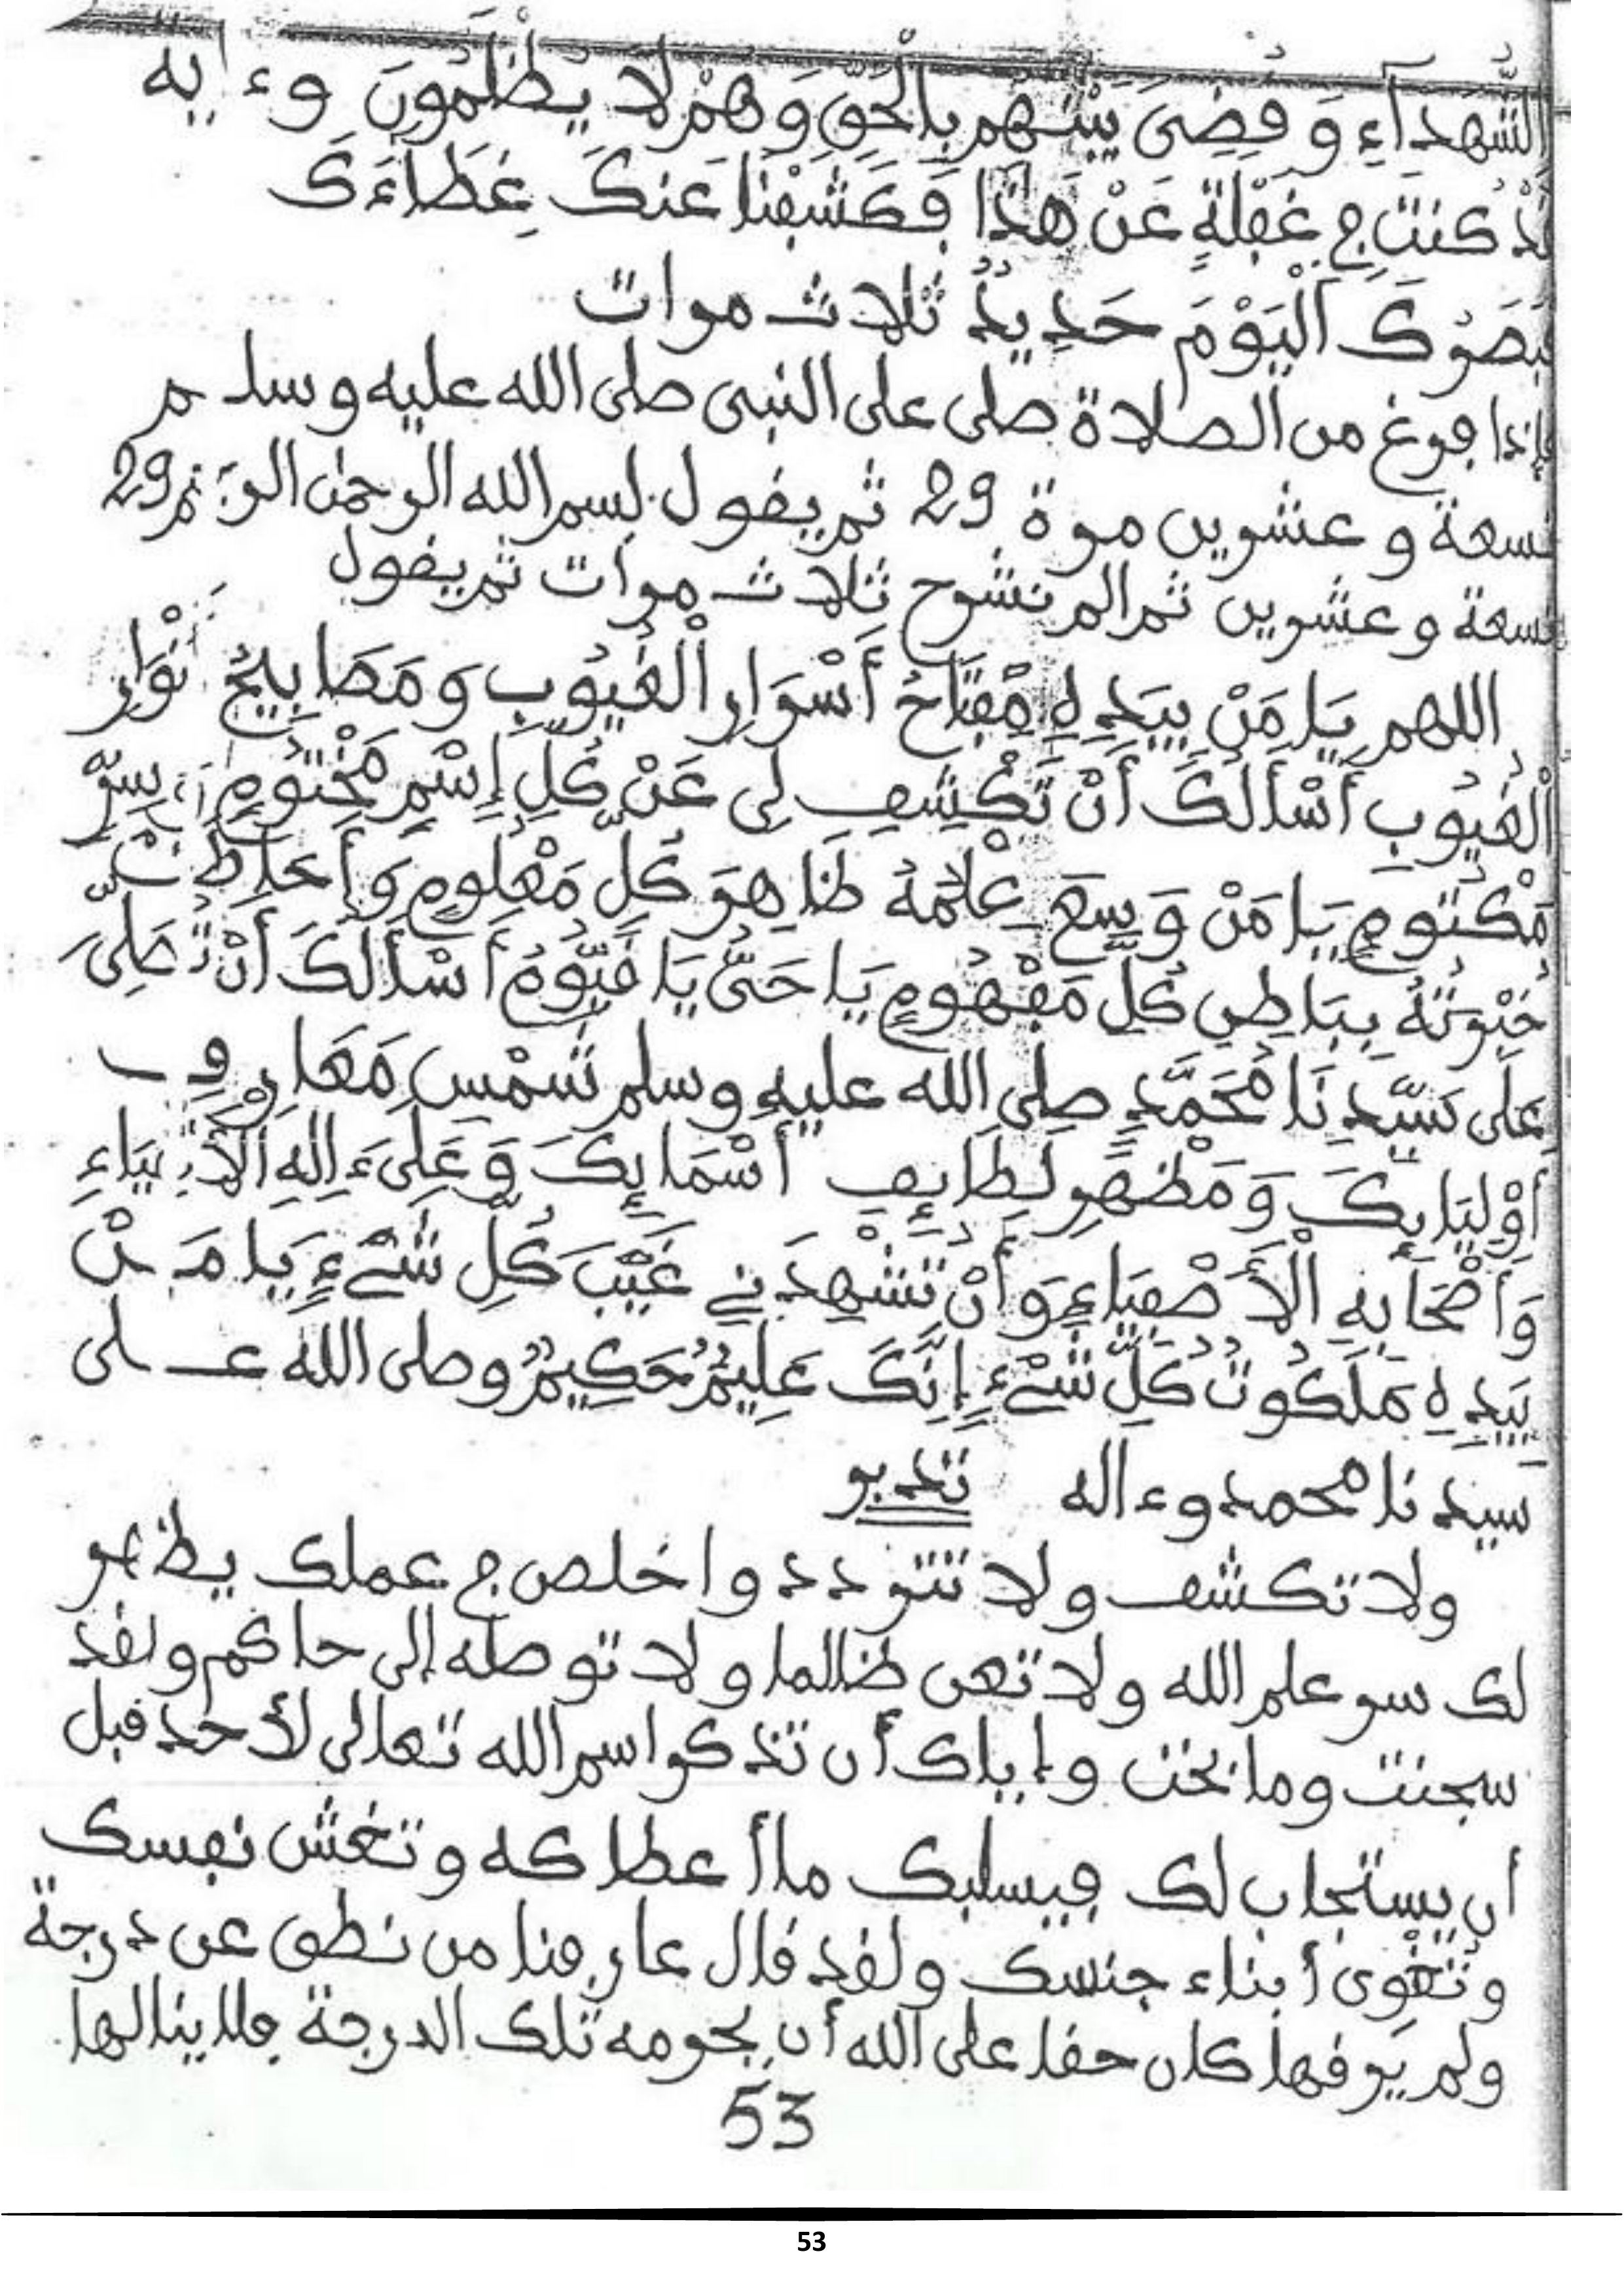 الشُّهَدَآءِ وَ قُضِيَ بَيْنَهُم بِالْحَقِّ وَهُمْ لَا يُظْلَمُونَ وءايه
لَّقَدْ كُنتَ فِي غَفْلَةٍ عَنْ هَذَا فَكَشَفْنَا عَنكَ غِطَاءَكَ
فَبَصَرُكَ الْيَوْمَ حَدِيدٌ ثلاث مرات
فإذا فرغ من الصلاة صلى على النبى صلى الله عليه وسلم
تسعة و عشرين مرة 29 ثم يقول بسم الله الرحمن الرحيم 29
تسعة وعشرين ثم الم نشرح ثلاث مرات ثم يقول
اللهم يَا مَنْ بِيَدِهِ مِفْتَاحُ أَسْرَارِ الْغُيُوبِ وَمَصَابِيحُ أَنْوَارِ
الْغُيُوبِ أَسْأَلُكَ أَنْ تَكْشِفَ لِى عَنْ كُلِّ إِسْمٍ مَخْتُومٍ سِرٍّ
مَكْتُومٍ يَا مَنْ وَسِعَ عِلْمُهُ ظَاهِرَ كُلِّ مَعْلُومٍ وَأَحَاطَتْ
خِبْرَتُهُ بِبَاطِنِ كُلِّ مَفْهُومٍ يَا حَىُّ يَا قَيُّومُ أَسْأَلُكَ أَنْ تُصَلِّىَ
عَلَى سَيِّدِنَا مُحَمَّدٍ صلى الله عليه وسلم شَمْسِ مَعَارِفِ
أَوْلِيَايِكَ وَمَظْهَرِ لَطَايِفِ أَسْمَايِكَ وَعَلَىءَالِهِ الأَنْبِيَاءِ
وَأَصْحَابِهِ الْأَصْفِيَاءِ وَأَنْ تُشْهِدَنِي غَيْبَ كُلِّ شَيْءٍ يَا مَنْ
بِيَدِهِ مَلَكُوتُ كُلِّ شَيْءٍ إِنَّكَ عَلِيمٌ حَكِيمٌ وصلى الله على
سيدنا محمد وءاله تدبر
ولا تكشف ولا تتردد واخلص في عملك يظهر
لك سر علم الله ولا تعن ظالما ولا توصله إلى حاكم ولقد
سجنت وما بخت وإياك أن تذكر اسم الله تعالى لأحد قبل
أن يستجاب لك فيسلبك ما أعطاكه وتغش نفسك
وتغوى أبناء جنسك ولقد قال عارفنا من نطق عن درجة
ولم يرقها كان حقا على الله أن يحرمه تلك الدرجة فلا ينالها
53
53